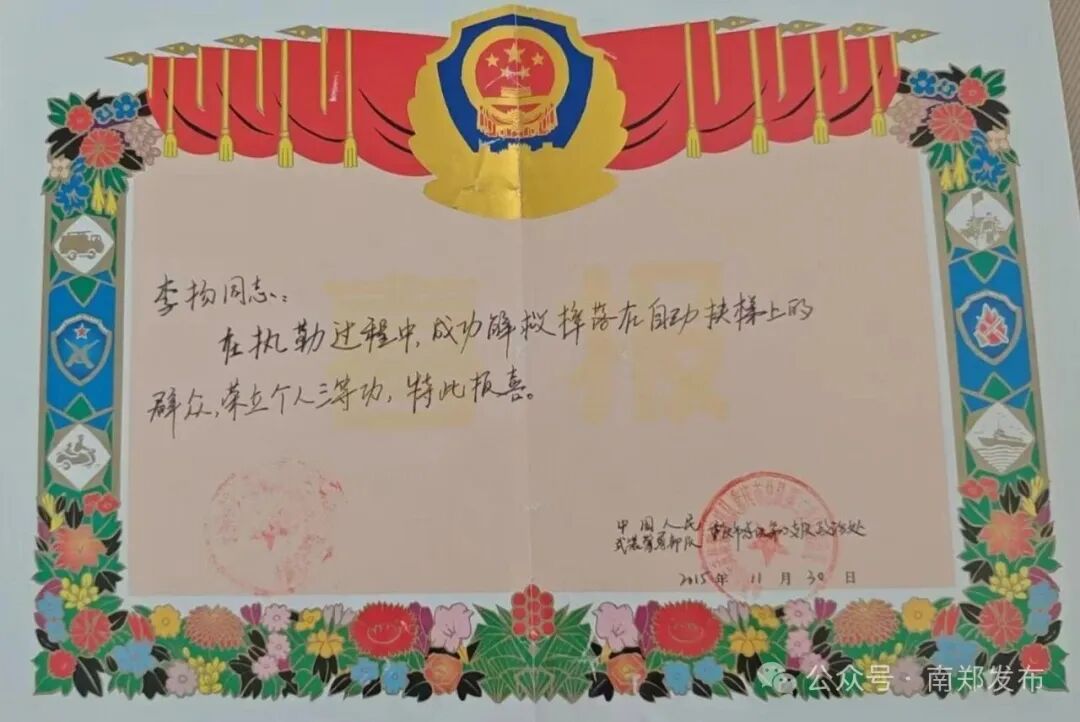 喜报
李扬同志:
在执勤过程中,成功解救掉落在自动扶梯上的
群众,荣立个人三等功,特此报喜。
中国人民
武装警察部队
重庆市总队第二支队政治处
2015年11月30日
公众号·南郑发布